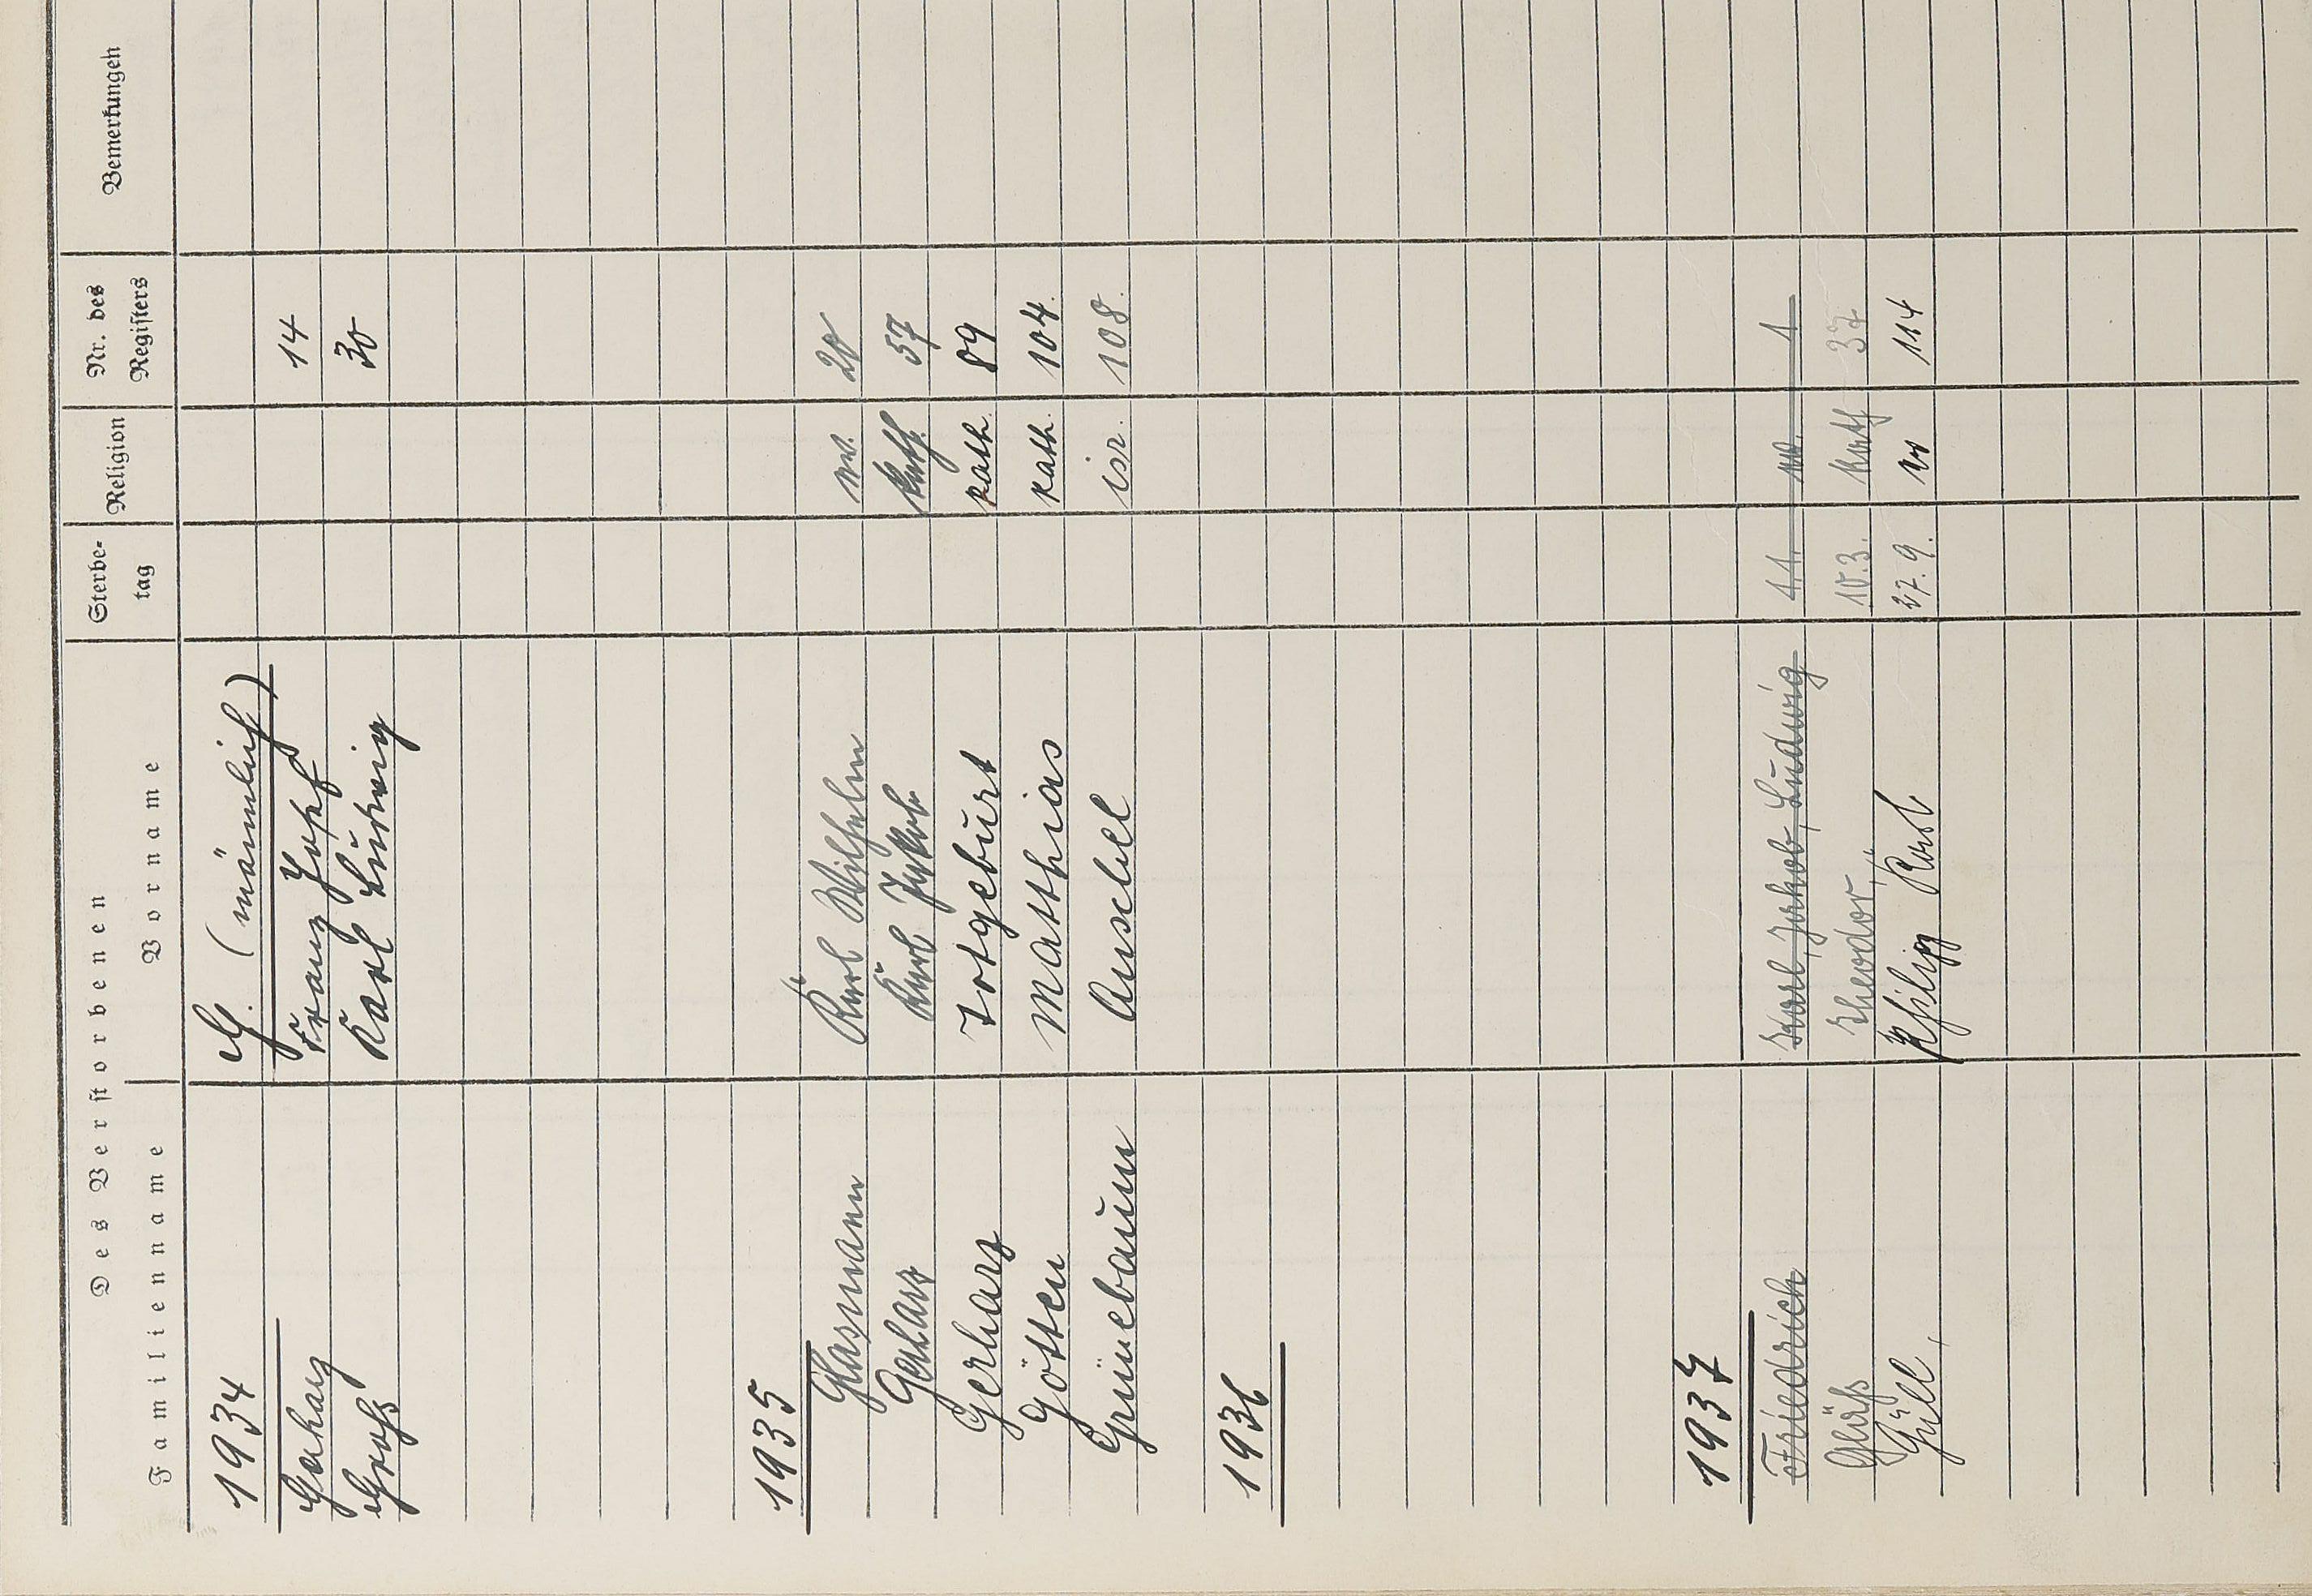 Des Verstorbenen
Familienname Vorname Sterbe-tag Religion Nr. des Registers Bemerkungen
1934 G. (männlich)
Gerharz Franz Josef 14
Groß Karl Ludwig 30
1935
Glasmann Karl Wilhelm ev. 20
Gerharz Karl Jakob kath. 57
Gerharz Totgeburt kath. 89
Götten Matthias kath. 104.
Grünebaum Anschel isr. 108.
1936
1937
Friedrich Karl, Jakob, Ludwig 1.1. ev. 1
Gläß Theodor 10.3. kath 37
Güll, Philipp Karl 27.9. ev 114